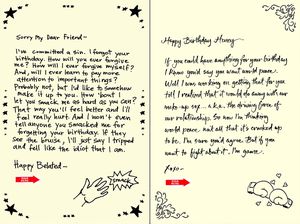 Sorry My Dear Friend~
I've committed a sin. I forgot your
birthday. How will you ever forgive
me? How will I ever forgive myself?
And, will I ever learn to pay more
attention to important things?
Probably not, but I'd like to somehow
make it up to you. How 'bout I
let you smack me as hard as you can?
That way you'll feel better and I'll
feel really hurt. And I won't even
tell anyone you smacked me for
forgetting your birthday. If they
see the bruise, I'll just say I tripped
and fell like the idiot that I am.
Happy Belated~
smack
Happy Birthday Hunny~
If you could have anything for your birthday
I know you'd say you want world peace.
Well I was working on getting that for you
till I realized that it would do away with our
make-up sex... a.k.a. the driving force of
our relationship. So now I'm thinking
world peace, not all that it's cracked up
to be. I'm sure you'd agree. But if you
want to fight about it, I'm game.
Xoxo~